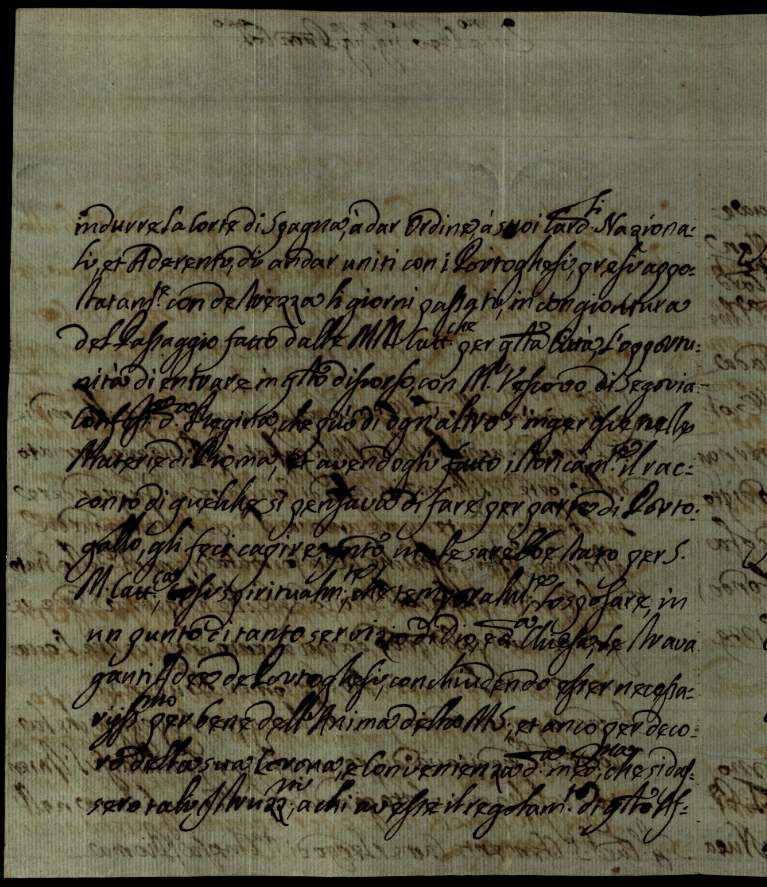 indurre la Corte di Spagna, à dar Ordine, à suoi Card.li Naziona:
li, et Aderenti, di andar uniti con i Portoghesi, presi appo:
statam.te con destrezza li giorni passati, in congiontura
del Passaggio fatto dalle MM. Catt.che per q.ta Città, l'opportu:
nità di entrare in q.to discorso, con M.r Vescovo di Segovia
Conf.re d.a Regina, che più di ogn'altro s'ingerisce nelle
Materie di Roma, et avendogli fatto istoricam.te il rac:
conto di quel che si pensava di fare per parte di Porto:
gallo, gli feci capire, q.nto male sarebbe stato per S.
M. Catt.ca, così spiritualm.te, che temporalm.te, lo sposare, in
un punto di tanto servizio di Dio, e d.a Chiesa, le strava
ganti Idee de Portoghesi, conchiudendo esser necessa:
rijss.mo per bene dell'Anima della M.S., et anco per deco:
ro della sua Corona, e Convenienza d.a med.ma, che si das:
sero tali Istruzz.ni, a chi avesse il regolam.to di q.to Af: